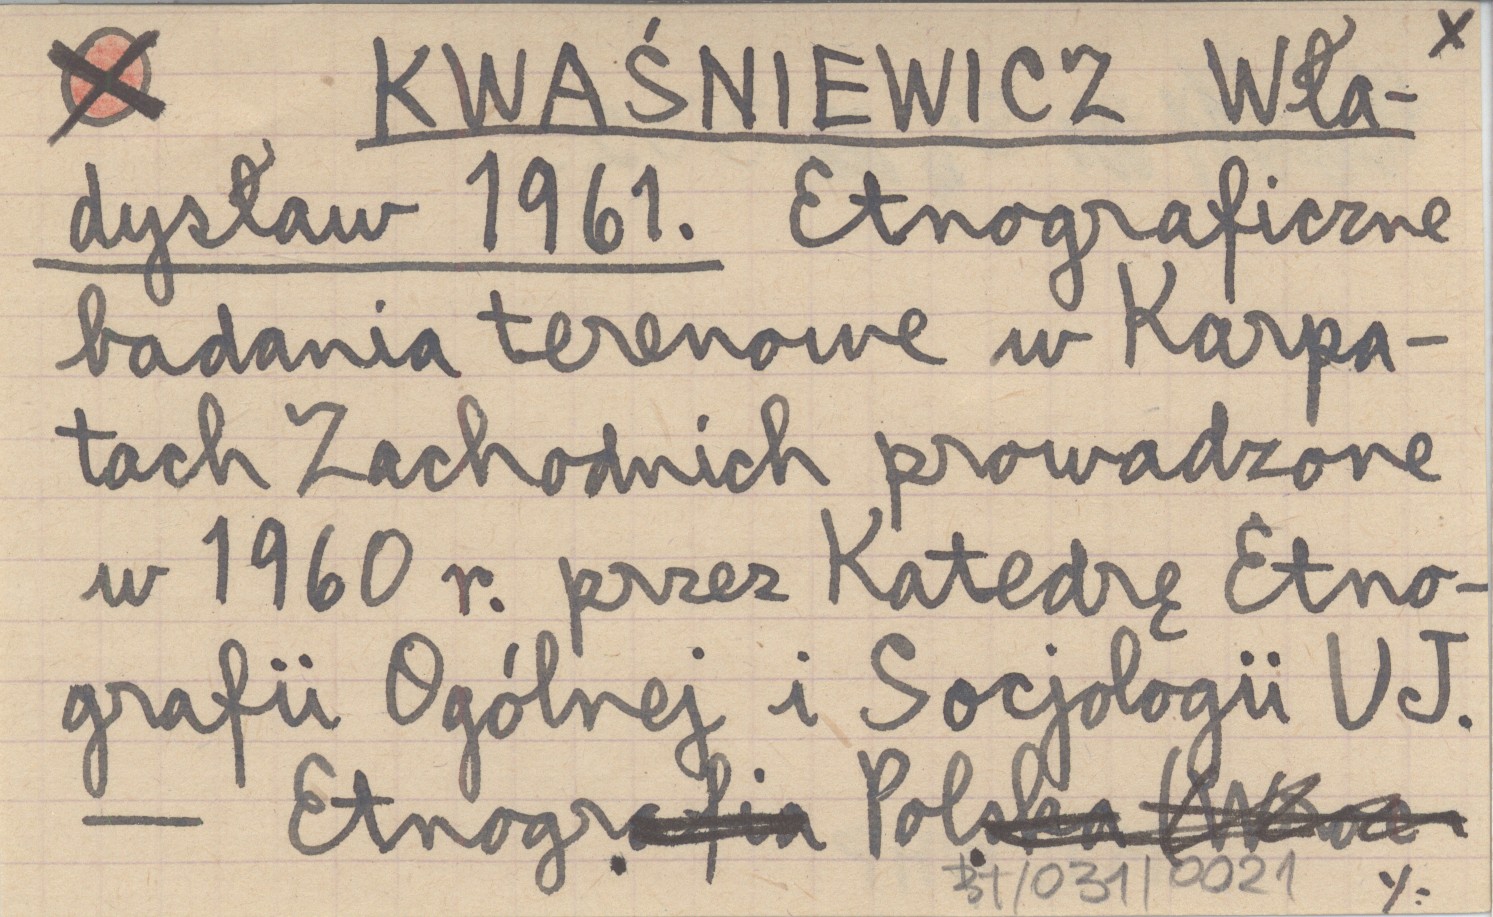 x
KWAŚNIEWICZ Wła-
dysław 1961. Etnograficzne
badania terenowe w Karpa-
tach Zachodnich prowadzone
w 1960 r. przez Katedrę Etno-
grafii Ogólnej i Socjologii UJ.
— Etnografia Polska
/031/0021